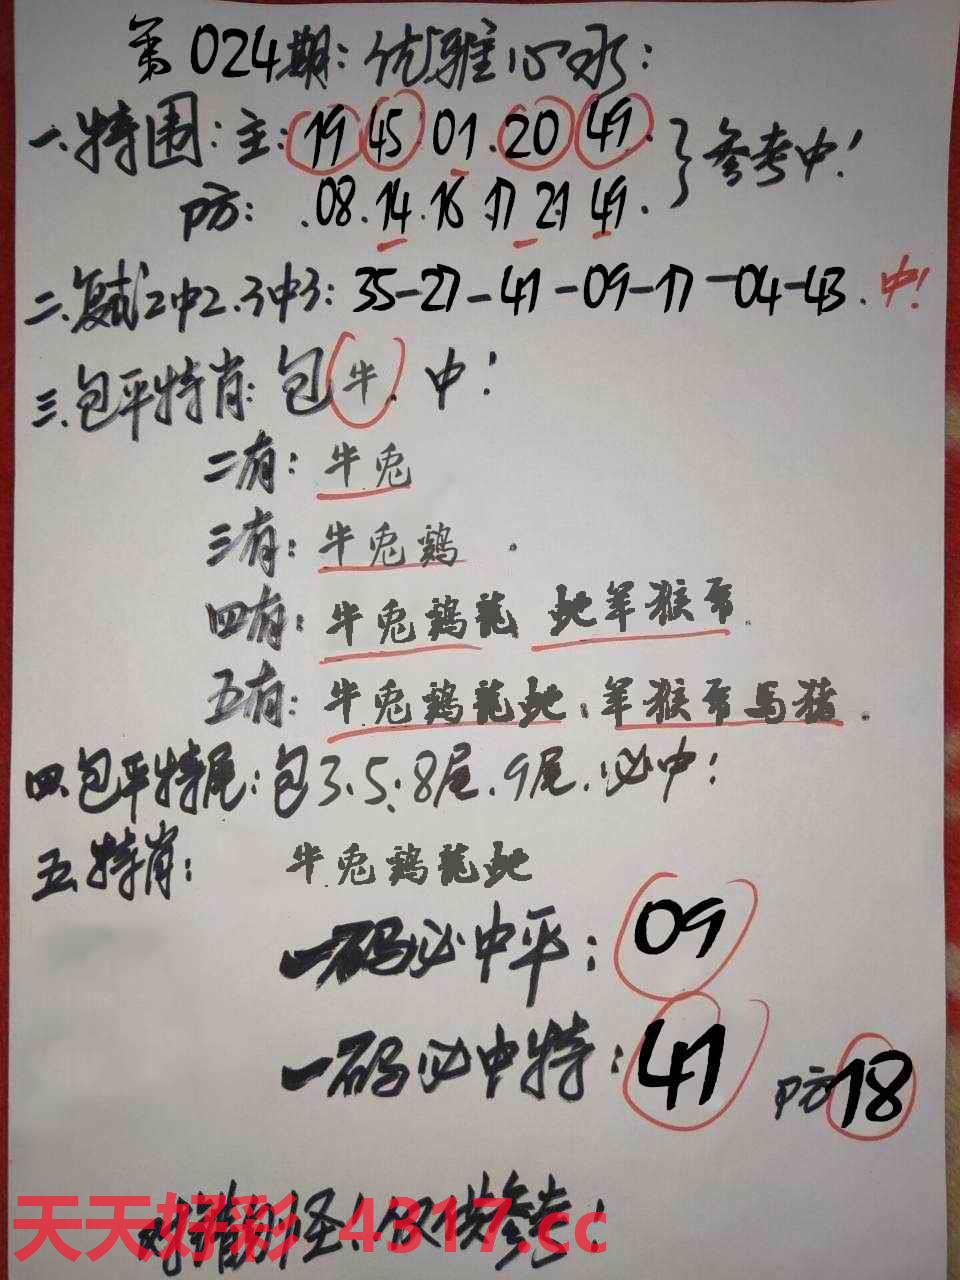 第024期:优雅心水:
一.特围:主:19 45 01.20 49.
防: .08.14.16 17 21 49. 参考中!
二.复试2中2.3中3:35-27-41-09-17-04-43.中!
三.包平特肖:包牛.中!
二有:牛兔
三有:牛兔鸡.
四有:牛兔鸡龍 蛇羊猴
五有:牛兔鸡龍蛇.羊猴 馬猪.
四.包平特尾:包3.5.8尾.9尾.必中!
五.特肖: 牛兔鸡龍蛇
一码必中平:09
一码必中特:41 防18
对错勿怪!仅供参考!
天天好彩 4317.cc